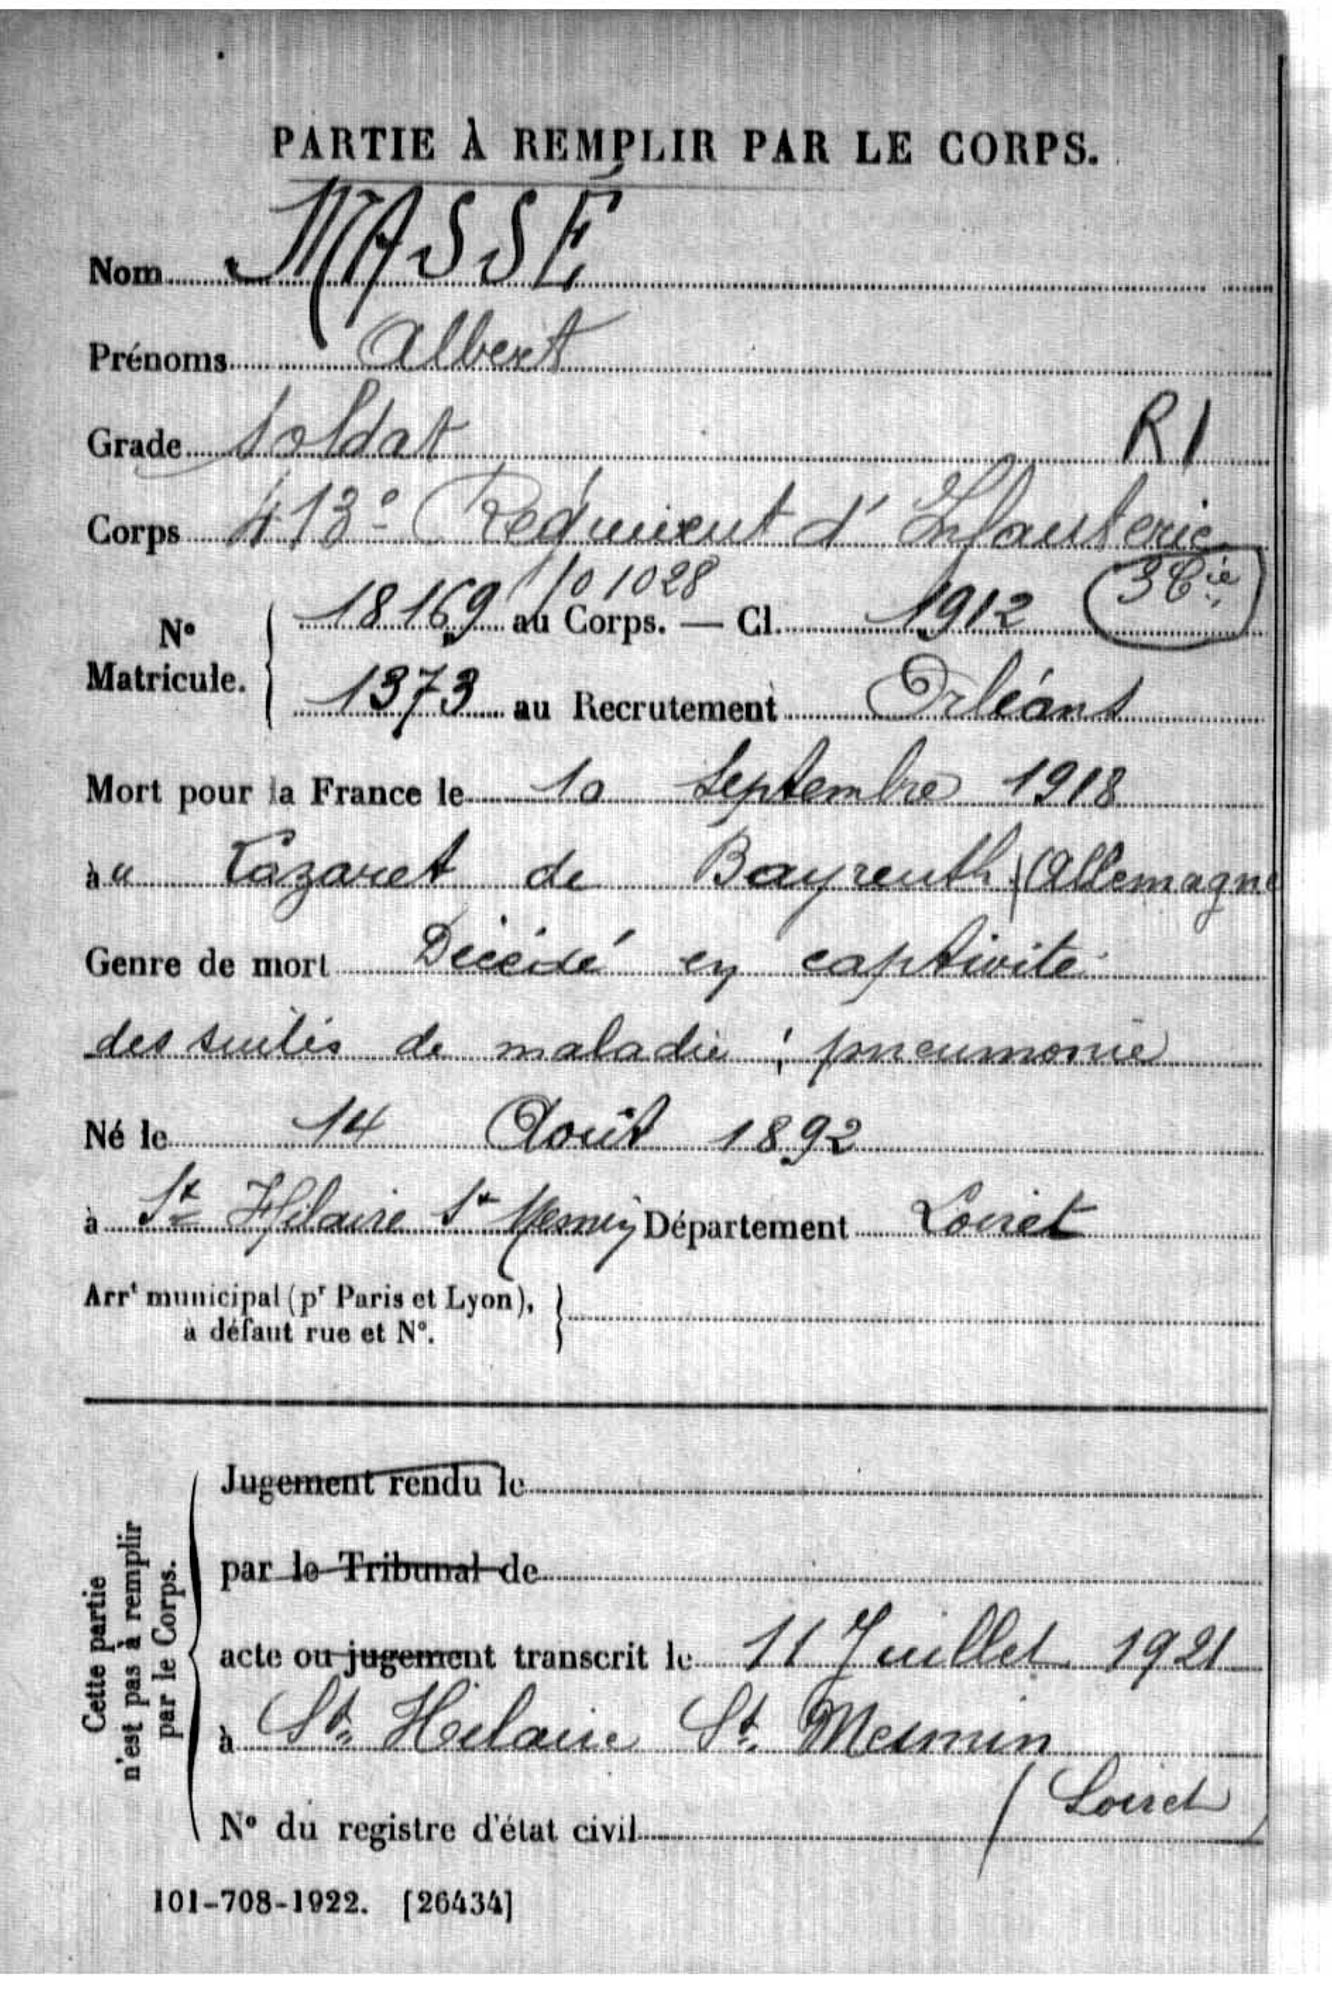 PARTIE À REMPLIR PAR LE CORPS.
Nom MASSÉ
Prénoms Albert
Grade Soldat R1
Corps 413e Régiment d' Infanterie
101028
3 Cie
No Matricule. 18169 au Corps. — Cl. 1912
1373 au Recrutement Orléans
Mort pour la France le 10 Septembre 1918
à u Lazaret de Bayreuth (Allemagne
Genre de mort Décédé en captivité
des suites de maladie : pneumonie
Né le 14 Août 1892
à St Hilaire St Mesmin Département Loiret
Arrt municipal (pr Paris et Lyon),
à défaut rue et No.
Cette partie
n'est pas à remplir
par le Corps.
Jugement rendu le
par le Tribunal de
acte ou jugement transcrit le 11 Juillet 1921
à St. Hilaire St. Mesmin
(Loiret)
No du registre d'état civil
101-708-1922. [26434]